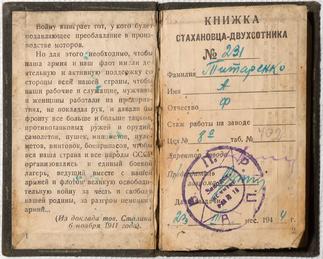 Войну выиграет тот, у кого будет
подавляющее преобладание в
производстве моторов.
Но для этого необходимо, чтобы
наша армия и наш флот имели
деятельную и активную поддержку со
стороны всей нашей страны, чтобы
наши рабочие и служащие, мужчины
и женщины работали на предприя-
тиях, не покладая рук, и давали бы
фронту все больше и больше танков,
противотанковых ружей и орудий,
самолетов, пушек, минометов, пуле-
метов, винтовок, боеприпасов, чтобы
вся наша страна и все народы СССР
организовались в единый боевой
лагерь, ведущий вместе с нашей
армией и флотом великую освободи-
тельную войну за честь и свободу
нашей родины, за разгром немецких
армий...
(Из доклада тов. Сталина
6 ноября 1941 года).
КНИЖКА
СТАХАНОВЦА-ДВУХСОТНИКА
№ 291
Фамилия Титаренко
Имя А
Отчество Ф
Стаж работы на заводе
Цех № таб. №
Директор завода
23 мес. 1944 г.